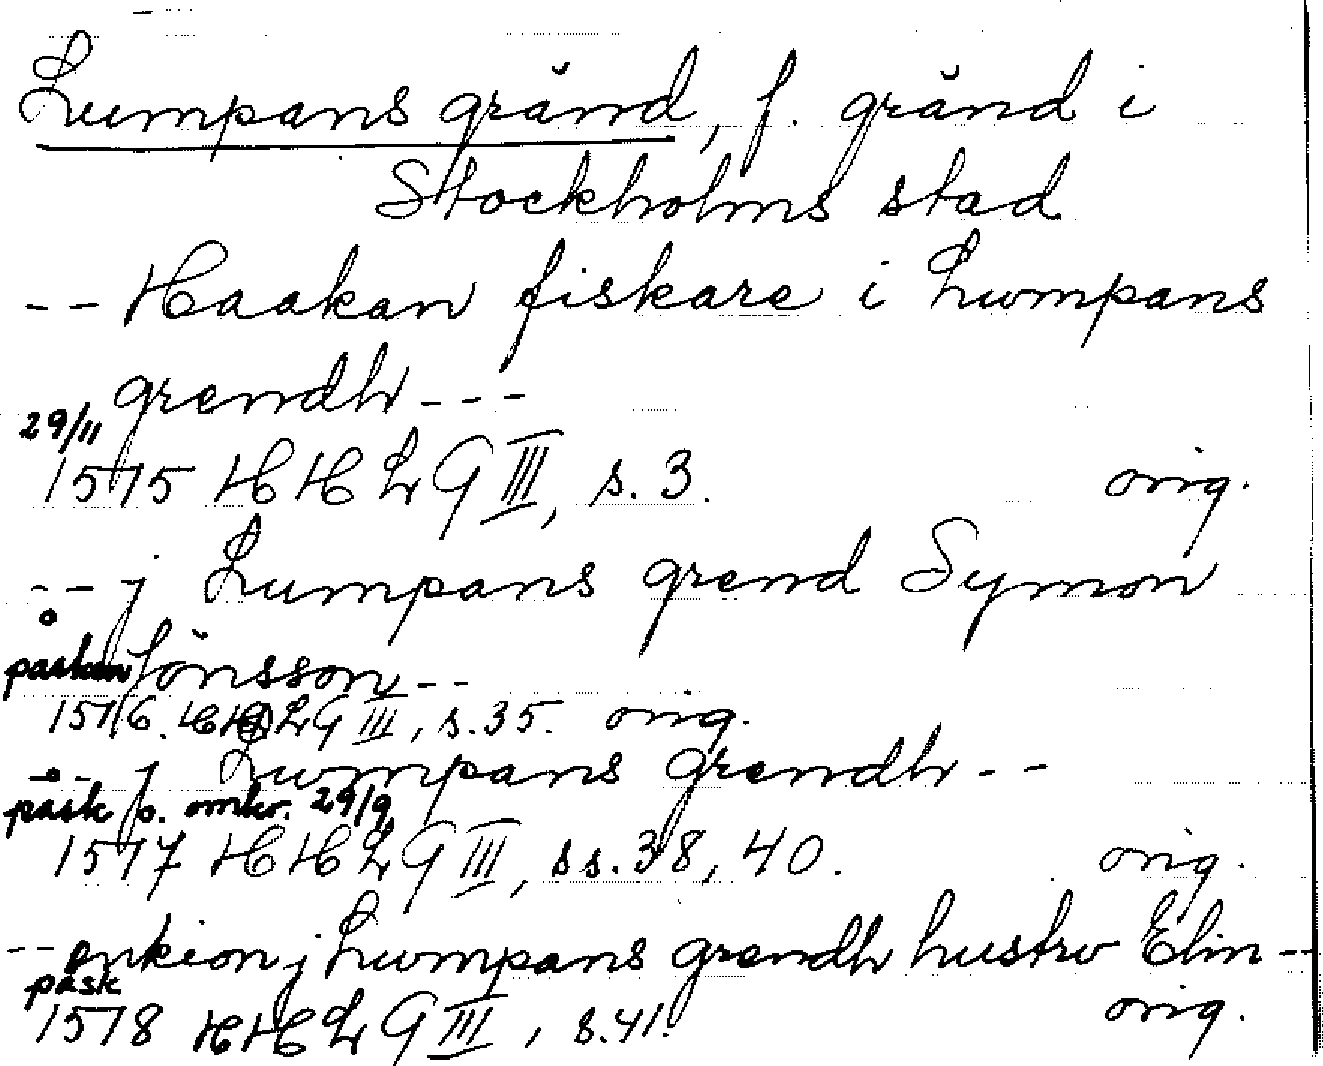 Lumpans gränd, f. gränd i
Stockholms stad
-- Haakan fiskare i Lwmpans
grendh ---
29/11
1575 HHLG III, s. 3. orig.
-- j Lumpans grend Symon
Jönsson --
påsken
1576. HHLG III, s. 35. orig.
-- j Lwmpans grendh --
påsk o. omkr. 29/9
1577 HHLG III, ss. 38, 40. orig.
-- enkion j Lwmpans grendh hustrv Elin --
påsk
1578 HHLG III, s. 41. orig.